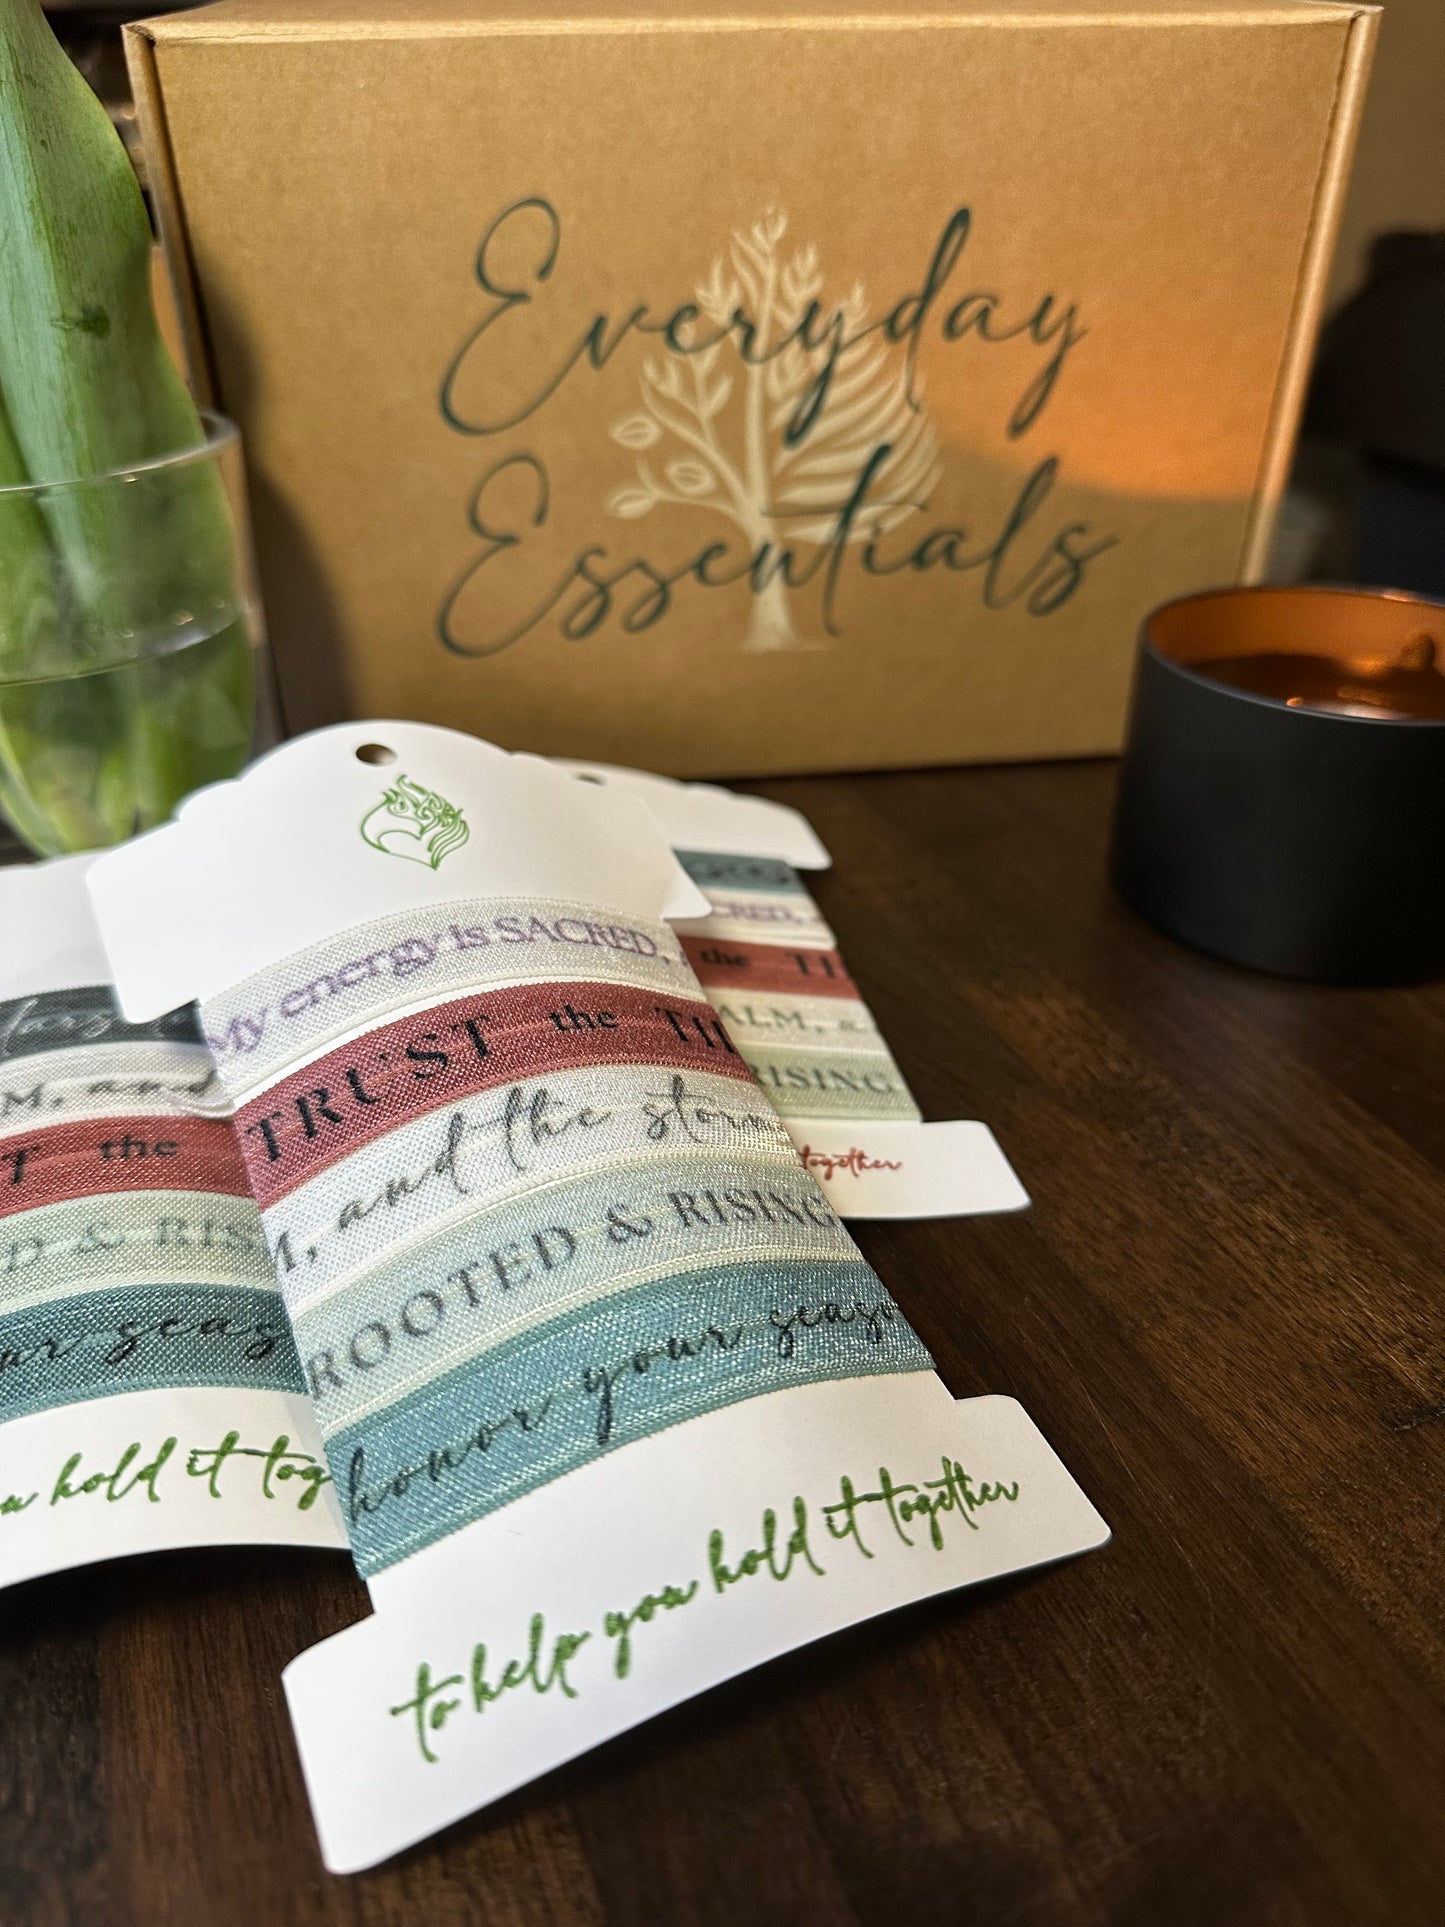 Everyday
Essentials
My energy is SACRED,
TRUST the
M, and the storm
ROOTED & RISING
honor your seaso
to help you hold it together
M, and
T the
D & RIS
ar seas
u hold it tog
CRED,
the TI
ALM, a
RISING
together